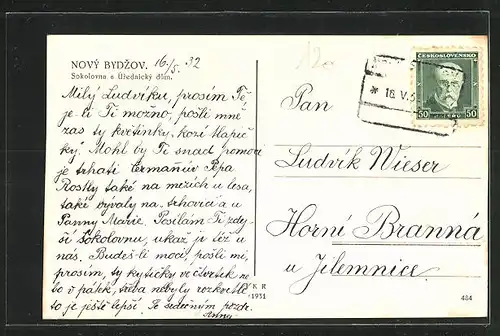 NOVÝ BYDŽOV. 16/5. 32
Sokolovna a Úřednický dům.
Milý Ludvíku, prosím Tě,
je-li Ti možno, pošli mně
zas ty květinky, kozí
Mohl by Ti snad pomoci
je trhati Pepa
Rostly také na mezích u lesa,
také bývaly na a u
Panny Marie. Posílám Ti zdej-
ší Sokolovnu, ukaž ji též u
nás. Budeš-li moci, pošli mi,
prosím, ty kytičky ve čtvrtek ne
bo v pátek, třeba nebyly rozkvetlé
to je ještě lepší. Se srdečným pozdr.
Anny
ČESKOSLOVENSKO
50 50
16.V.3
Pan
Ludvík Wieser
Horní Branná
u Jilemnice
V K K
1931
484